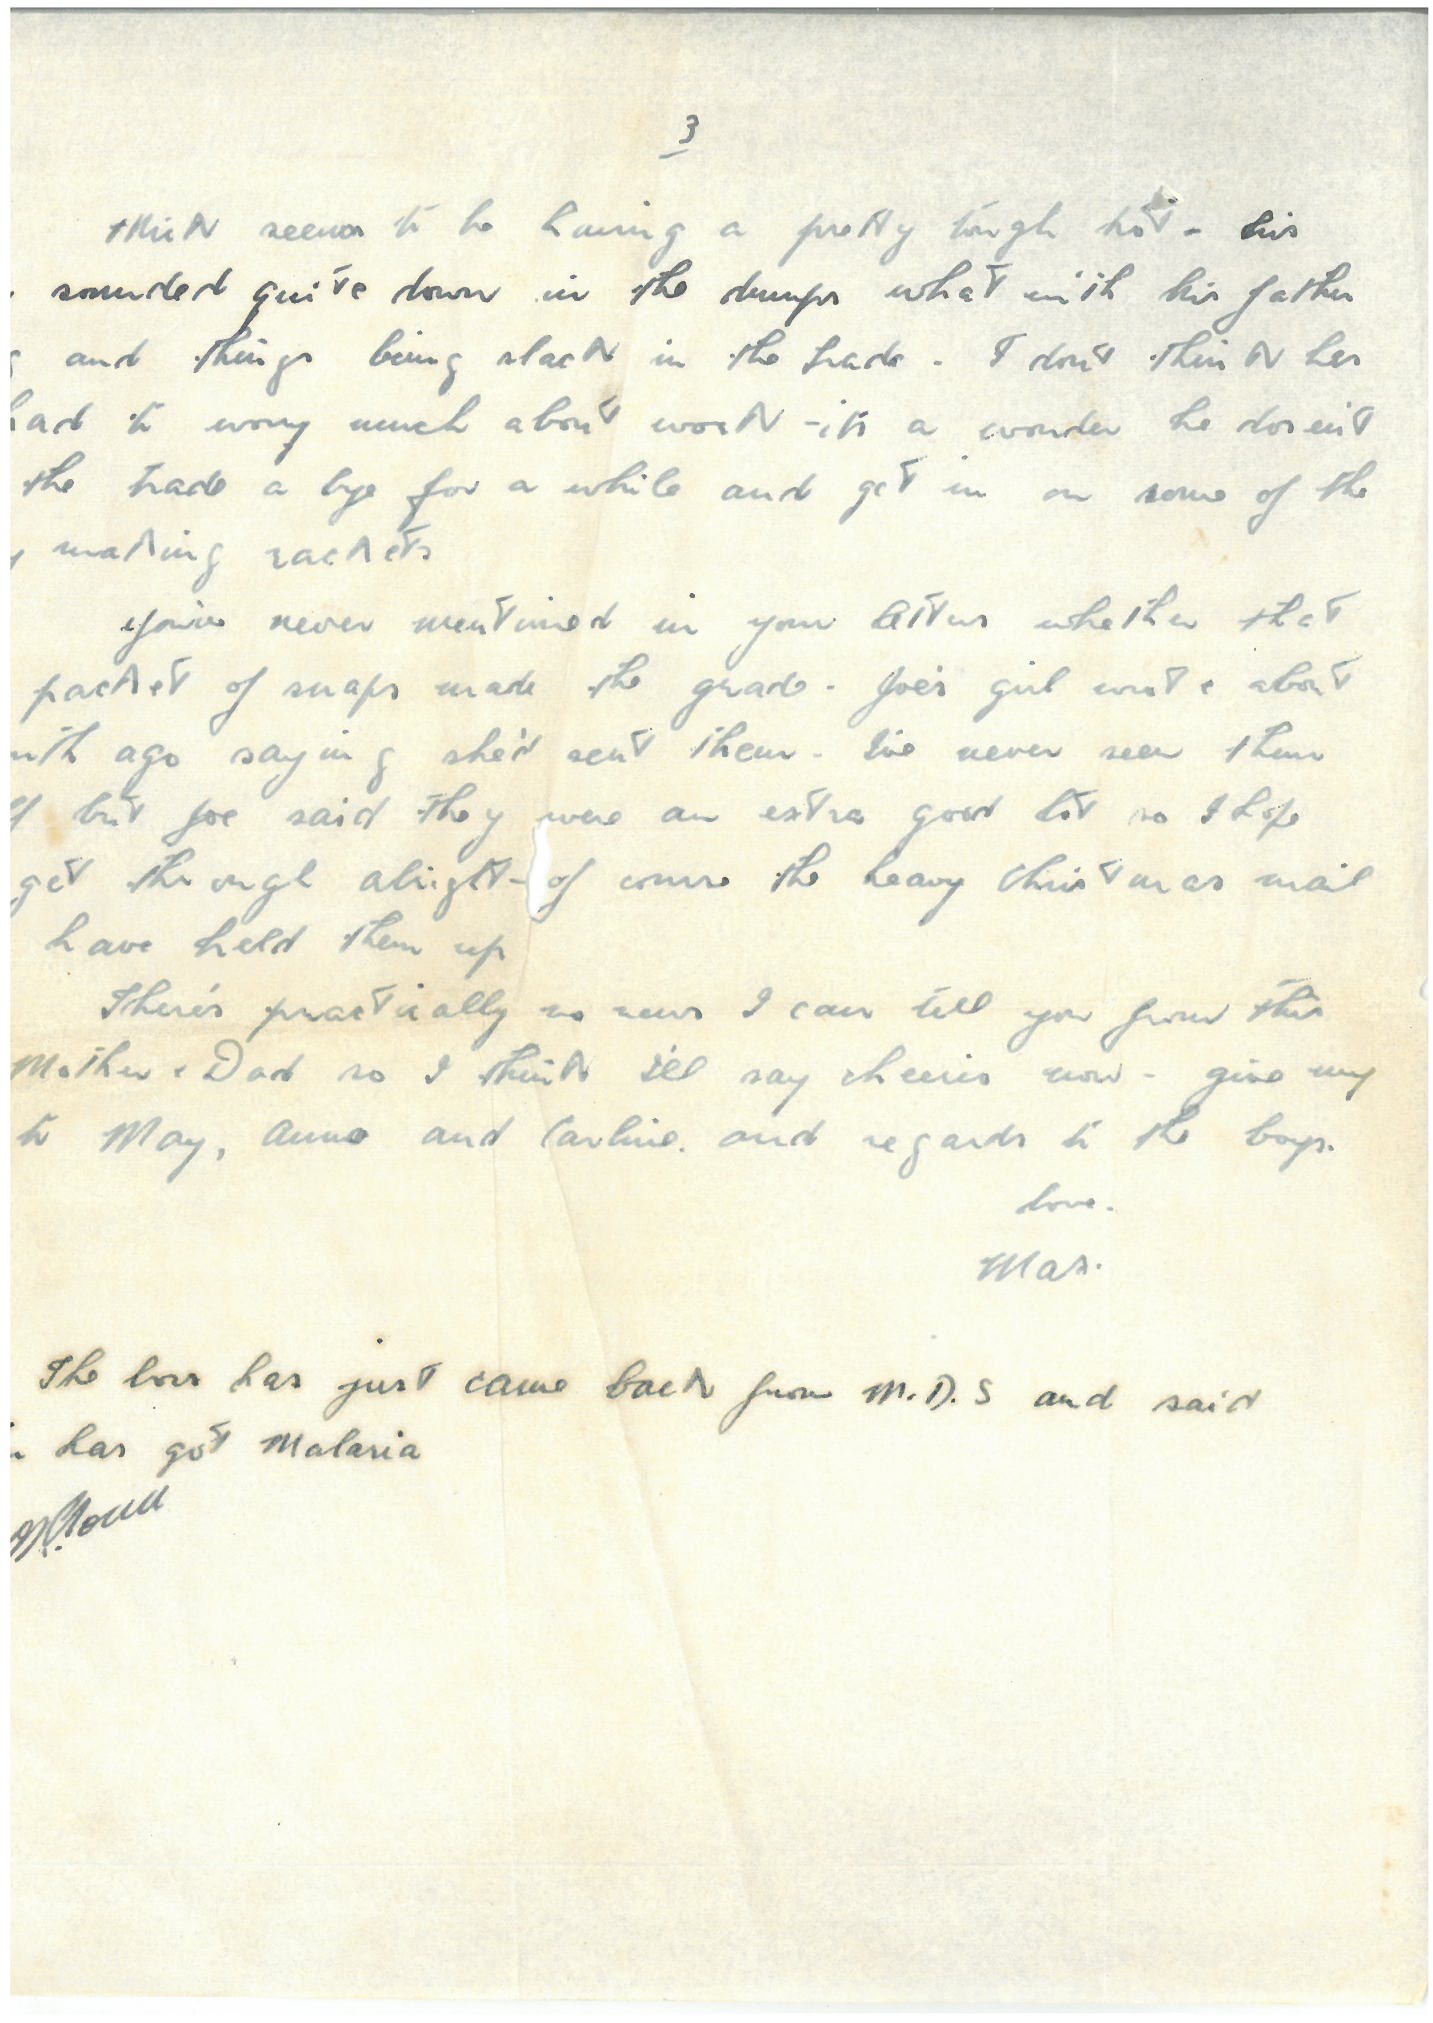 3
Mick seems to be having a pretty tough trot - his
sounded quite down in the dumps what with his father
and things being slack in the trade. I don't think hes
had to worry much about work - its a wonder he dosen't
the trade a bye for a while and get in on some of the
making rackets
You've never mentioned in your letters whether that
packet of snaps made the grade. Joe's girl wrote about
nth ago saying she'd sent them. I've never seen them
but Joe said they were an extra good lot so I hope
get through alright - of course the heavy Christmas mail
have held them up
There's practically no news I can tell you from this
Mother & Dad so I think I'll say cheerio now - give my
to May, Anne and Carline. and regards to the boys.
Love.
Max.
The boss has just came back from M.D.S and said
has got Malaria